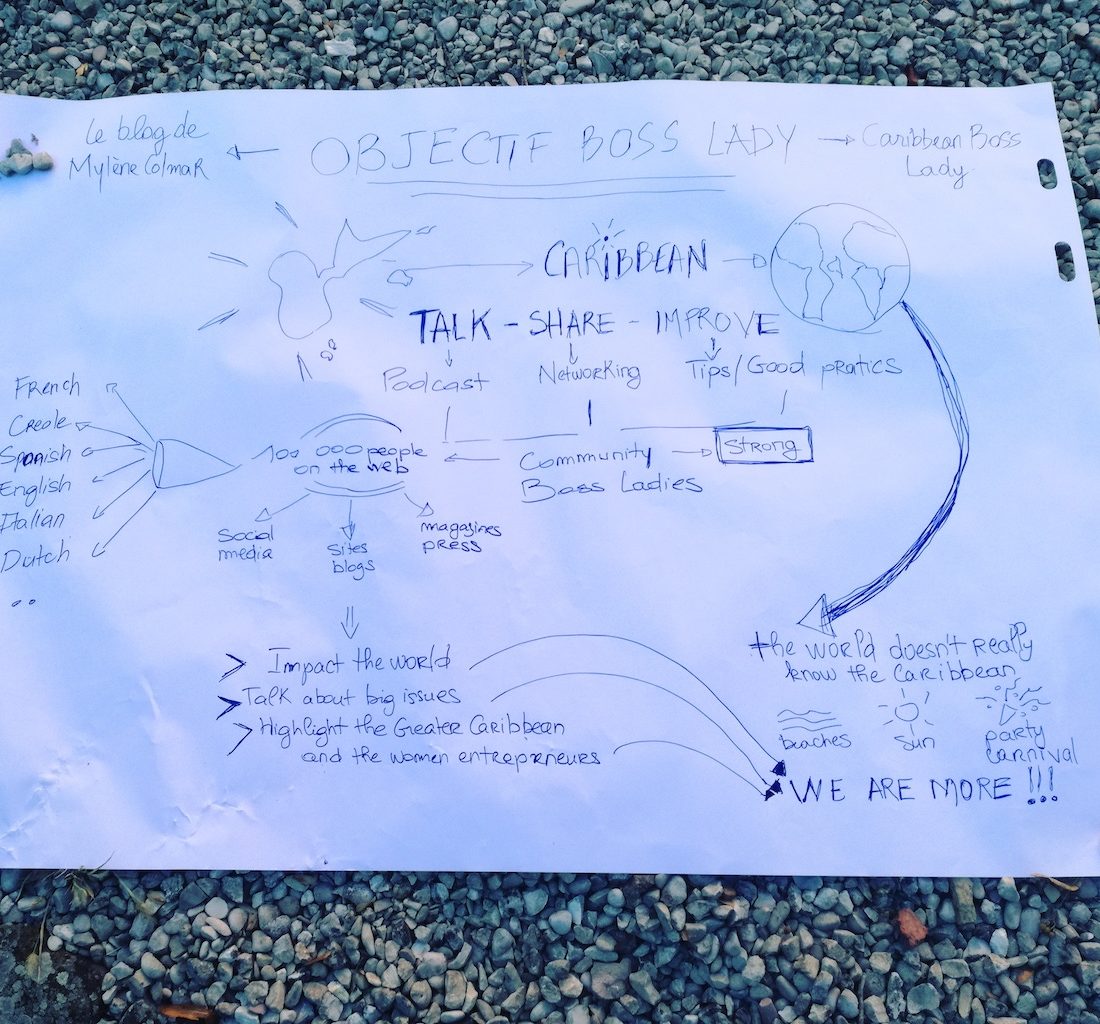 Le blog de
Mylène Colmar
OBJECTIF BOSS LADY
Caribbean Boss
Lady
CARIBBEAN
TALK - SHARE - IMPROVE
Podcast
Networking
Tips/Good pratics
French
Creole
Spanish
English
Italian
Dutch
..
100 000 people
on the web
Community
Boss Ladies
Strong
Social
media
Sites
blogs
magazines
press
Impact the world
Talk about big issues
Highlight the Greater Caribbean
and the women entrepreneurs
the world doesn't really
know the Caribbean
beaches
sun
party
carnival
WE ARE MORE !!!